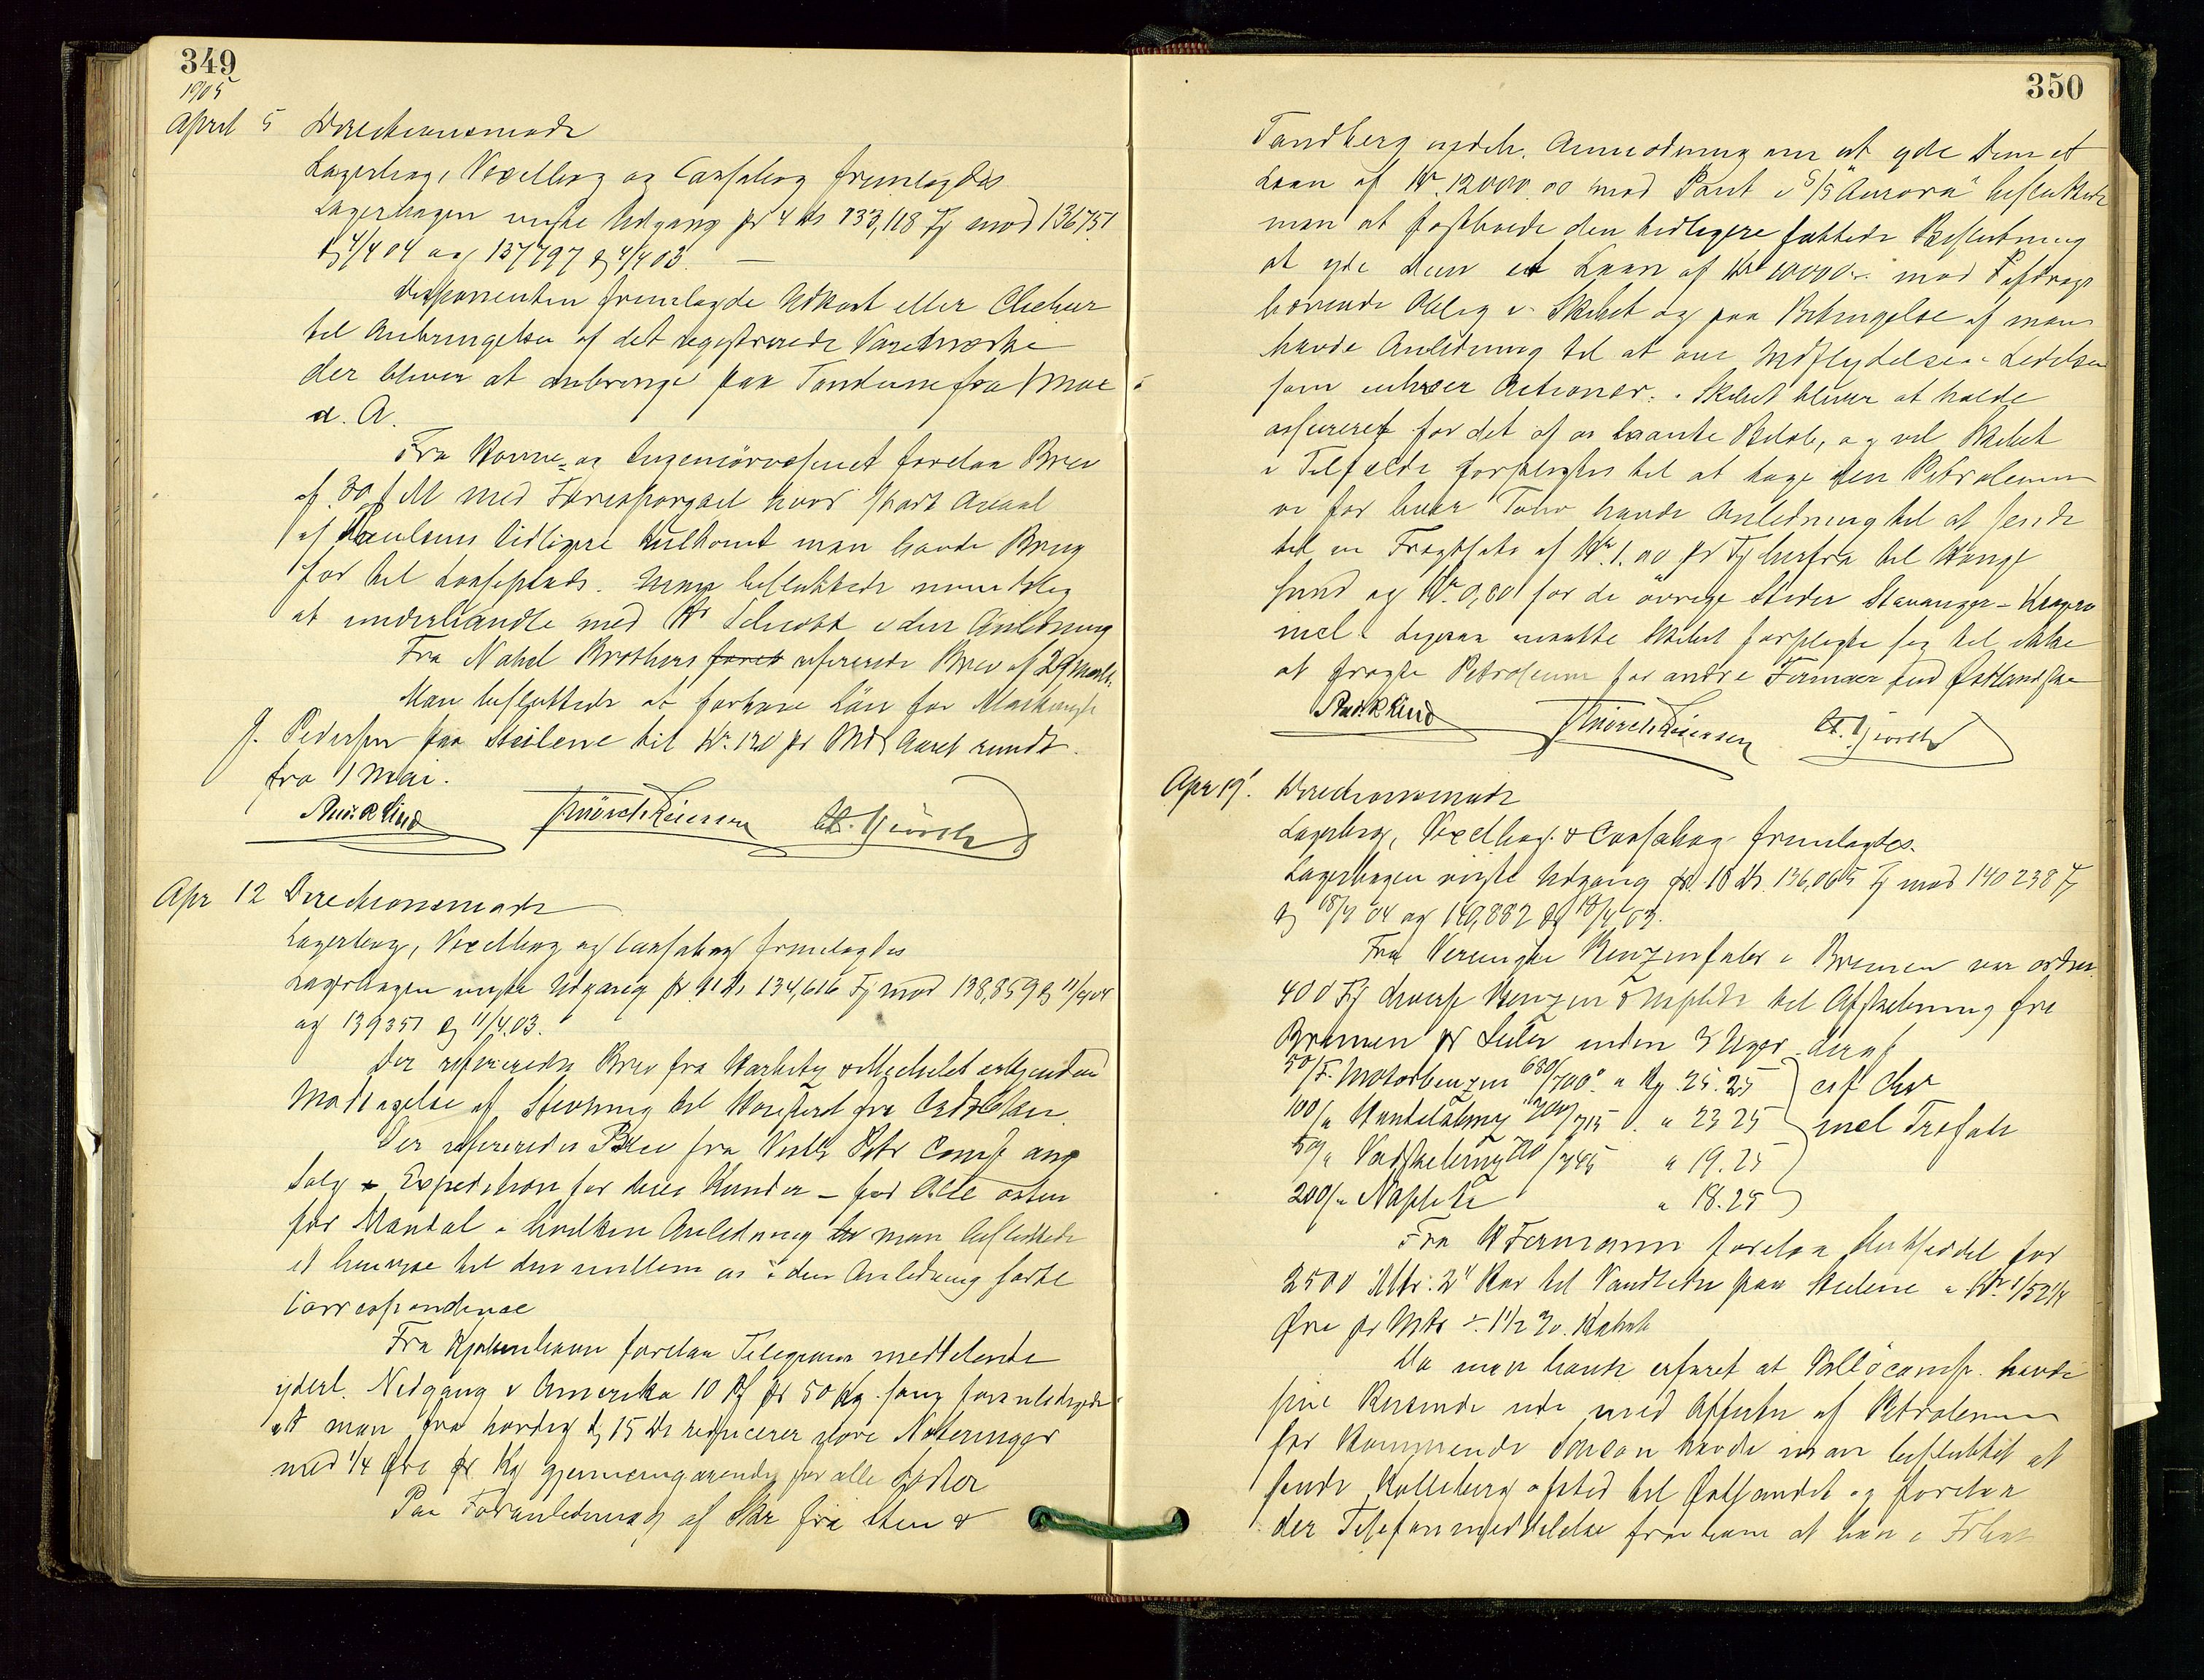 349
1905
April 5 Direktionsmøde
Lagerbog, Vexelbog og Cassabog fremlagdes
Lagerbogen viste Udgang pr 4 ds 133,118 Fj mod 136751
d 4/4 04 og 137797 d 4/4 03. —
Disponenten fremlagde Udkast eller Clicheer
til Anbringelse af det registrerede Varemærke
der bliver at anbringe paa Tønderne fra 1 Mai
d. A.
Fra Havne- og Ingeniørvæsenet forelaa Brev
af 30 f M med Forespørgsel hvor stort Areal
af tidligere Kultomt man havde Brug
for til Losseplads. Man besluttede mundtlig
at underhandle med Hr i den Anledning
Fra Nobel Brothers refereredes Brev af 29 Marts.
Man besluttede at forhøie Løn for Maskinist
J. Pedersen paa Steilene til Kr. 120 pr Md Aaret rundt
fra 1 Mai.
Apr 12 Direktionsmøde
Lagerbog, Vexelbog og Cassabog fremlagdes
Lagerbogen viste Udgang pr 11 ds 134,616 Fj mod 138,859 d 11/4 04
og 139351 d 11/4.03.
Der refereredes Brev fra
Modtagelse af Stevning til fra
Der refereredes Brev fra Vestl. Petr Comp ang
Salg & Expedition for deres Kunder – for Alle østen
for Mandal i hvilken Anledning man besluttede
at henvise til den mellem os i den Anledning førte
Correspondence
Fra Kjøbenhavn forelaa Telegram meddelende
yderl. Nedgang i Amerika 10 Pf pr 50 Kg. som foranledigede
at man fra Lørdag d 15 ds reducerer vore Noteringer
med 1/4 Øre pr Kg gjennemgaaende for alle Steder
Paa Foranledning af Skr fra Sten &
350
Tandberg Anmodning om at yde Dem et
Laan af Kr. 12000.00 mod Pant i S/S "Aurora" besluttede
man at fastholde den tidligere fattede Beslutning
at yde dem et Laan af Kr 10000.- mod
Oblig i Skibet og paa Betingelse af man
havde Anledning til at øve Indflydelse i Ledelsen
som enhver Actionær. Skibet bliver at holde
assureret for det af os laante Beløb, og vil Skibet
i Tilfælde forpligtes til at tage den Petroleum
vi for hver Tour havde Anledning til at sende
til en Fragtsats af Kr. 1.00 pr Fj herfra til Hauge
sund og Kr. 0,80 for de øvrige Steder Stavanger – Kragerø
incl. Ligesaa maatte Skibet forpligte sig til ikke
at fragte Petroleum for andre Firmaer end Østlandske
Apr 19. Direktionsmøde
Lagerbog, Vexelbog & Cassabog fremlagdes.
Lagerbogen viste Udgang pr. 18 ds. 136,065 Fj mod 140238 Fj
d 18/4 04 og 140,882 d 18/4 03.
Fra Vereinigte Benzinfabr i Bremen var ordret
400 Fj diverse Benzin & Naphta til Afskibning fra
Bremen pr Seiler inden 3 Uger deraf
50/F. Motorbenzin 680/700° a Kg. 25.25
100/" 700/715 " 23.25
50/" 720/745 " 19.25
200/" Naphta " 18.25
cif Chr
incl Træfade
Fra W Fermann forelaa Slutseddel for
2500 Mtr. 2" Rør til Vandledn paa Steilene a Kr. 1/52 1/4
Øre pr Mtr ÷ 1 1/2 %. Rabat
Da man havde erfaret at Vallöcomp. havde
sine Reisende ude med Offerter af Petroleum
for kommende Saison havde man besluttet at
sende Kolleberg afsted til Østlandet og forelaa
der Telefonmeddelelse fra ham at han i